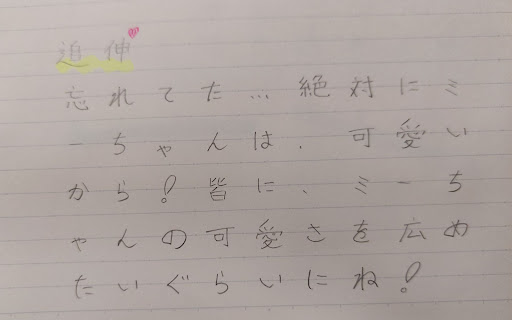 追伸
忘れてた…絶対にミ
ーちゃんは、可愛い
から!皆に、ミーち
ゃんの可愛さを広め
たいぐらいにね!